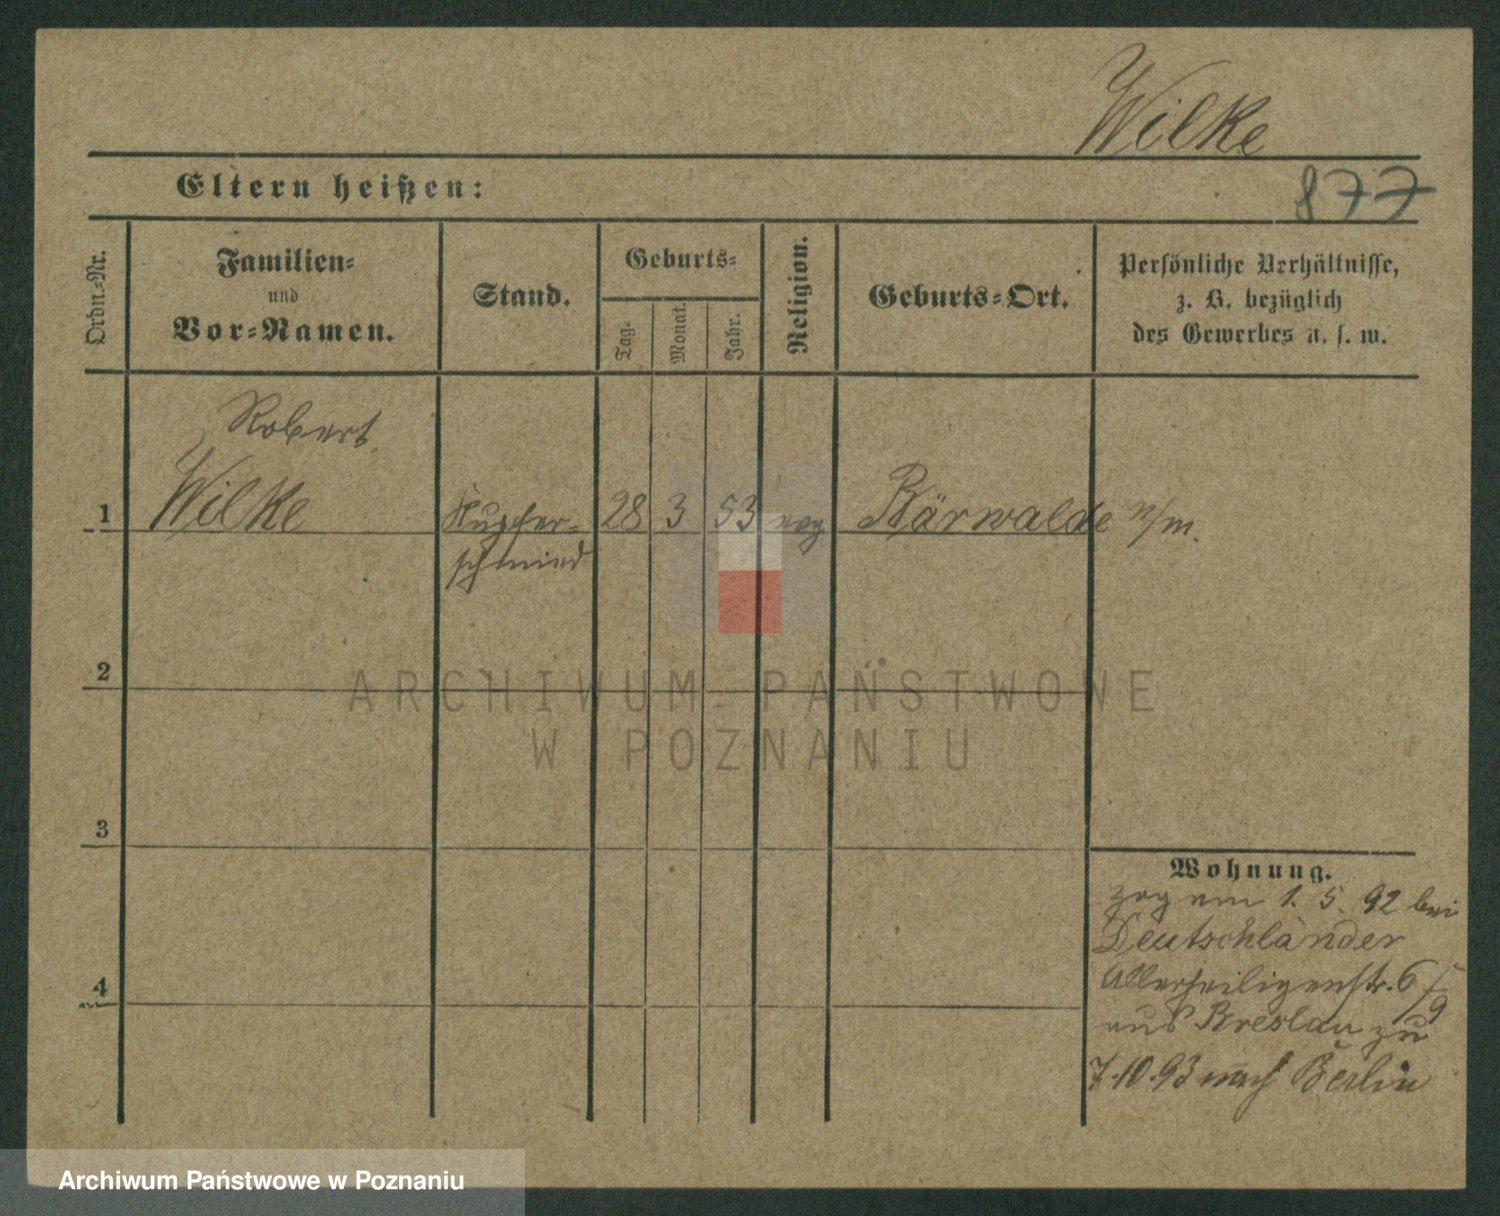 Wilke
877
Eltern heißen:
Ordn.-Nr.
Familien-
und
Vor-Namen.
Stand.
Geburts-
Tag.
Monat.
Jahr.
Religion.
Geburts-Ort.
Persönliche Verhältnisse,
z. B. bezüglich
des Gewerbes u. s. w.
Robert
1 Wilke Kupfer- 28 3 53 evg Bärwalde n/m.
schmied
2
3
4
Wohnung.
zog am 1. 5. 92 bei
Deutschländer
Allerheiligenstr. 6
aus Breslau zu
7.10.93 nach Berlin
ARCHIWUM PAŃSTWOWE
W POZNANIU
Archiwum Państwowe w Poznaniu